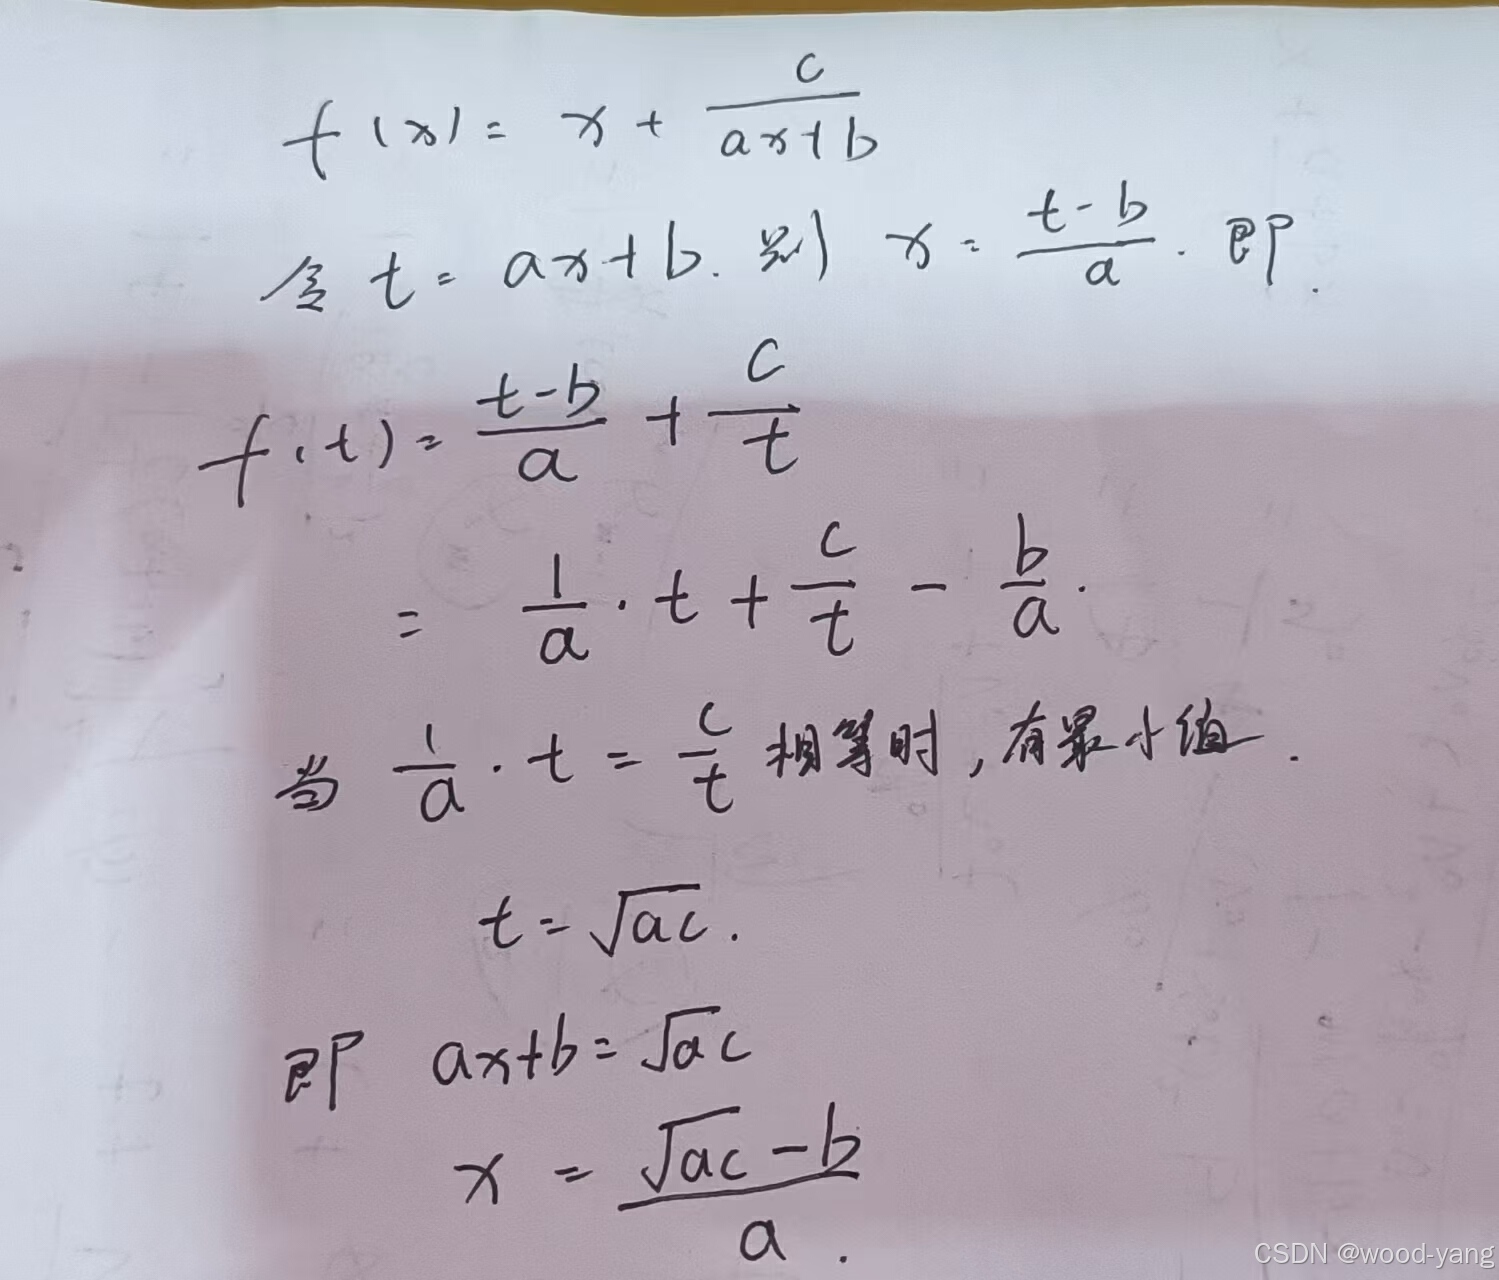 f(x) = x + c/(ax+b)
令 t = ax+b. 则 x = (t-b)/a. 即.
f(t) = (t-b)/a + c/t
= 1/a · t + c/t - b/a.
当 1/a · t = c/t 相等时,有最小值.
t = √ac.
即 ax+b = √ac
x = (√ac - b)/a.
CSDN @wood-yang